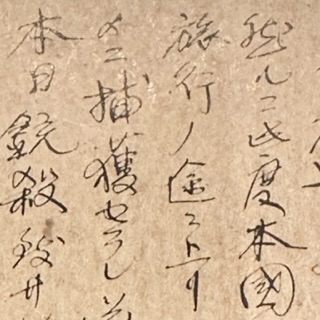 然ルニ此度本國
旅行ノ途ニ上リ
メニ捕獲セラレ
本日銃殺致サ